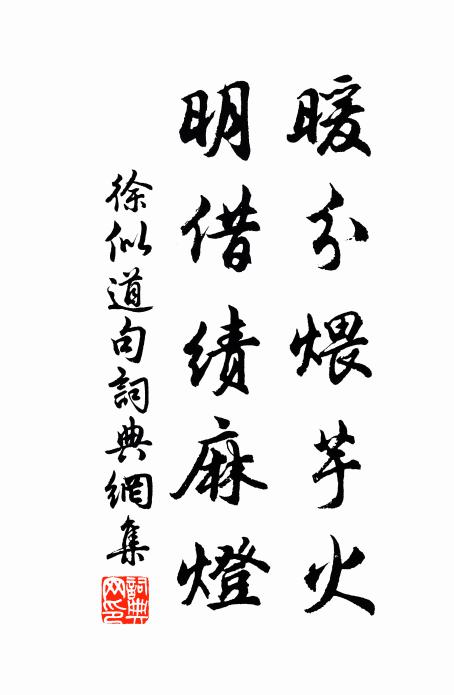 暖分煨芋火
明借績麻燈
徐似道句詞典網集
詞典网印